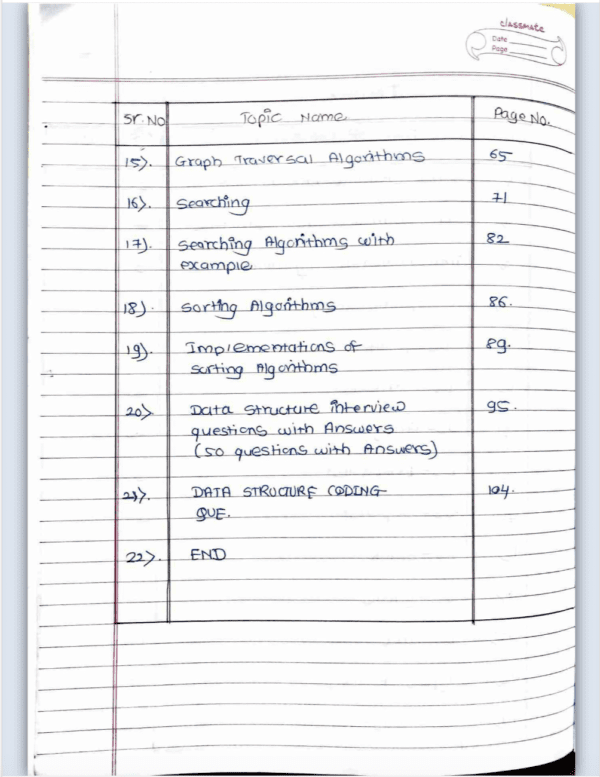 classmate
Date
Page
Sr. No Topic Name Page No.
15). Graph Traversal Algorithms 65
16). Searching 71
17). Searching Algorithms with 82
example
18). Sorting Algorithms 86.
19). Implementations of 89.
sorting Algorithms
20). Data structure interview 95.
questions with Answers
(50 questions with Answers)
21). DATA STRUCTURE CODING 104.
QUE.
22). END